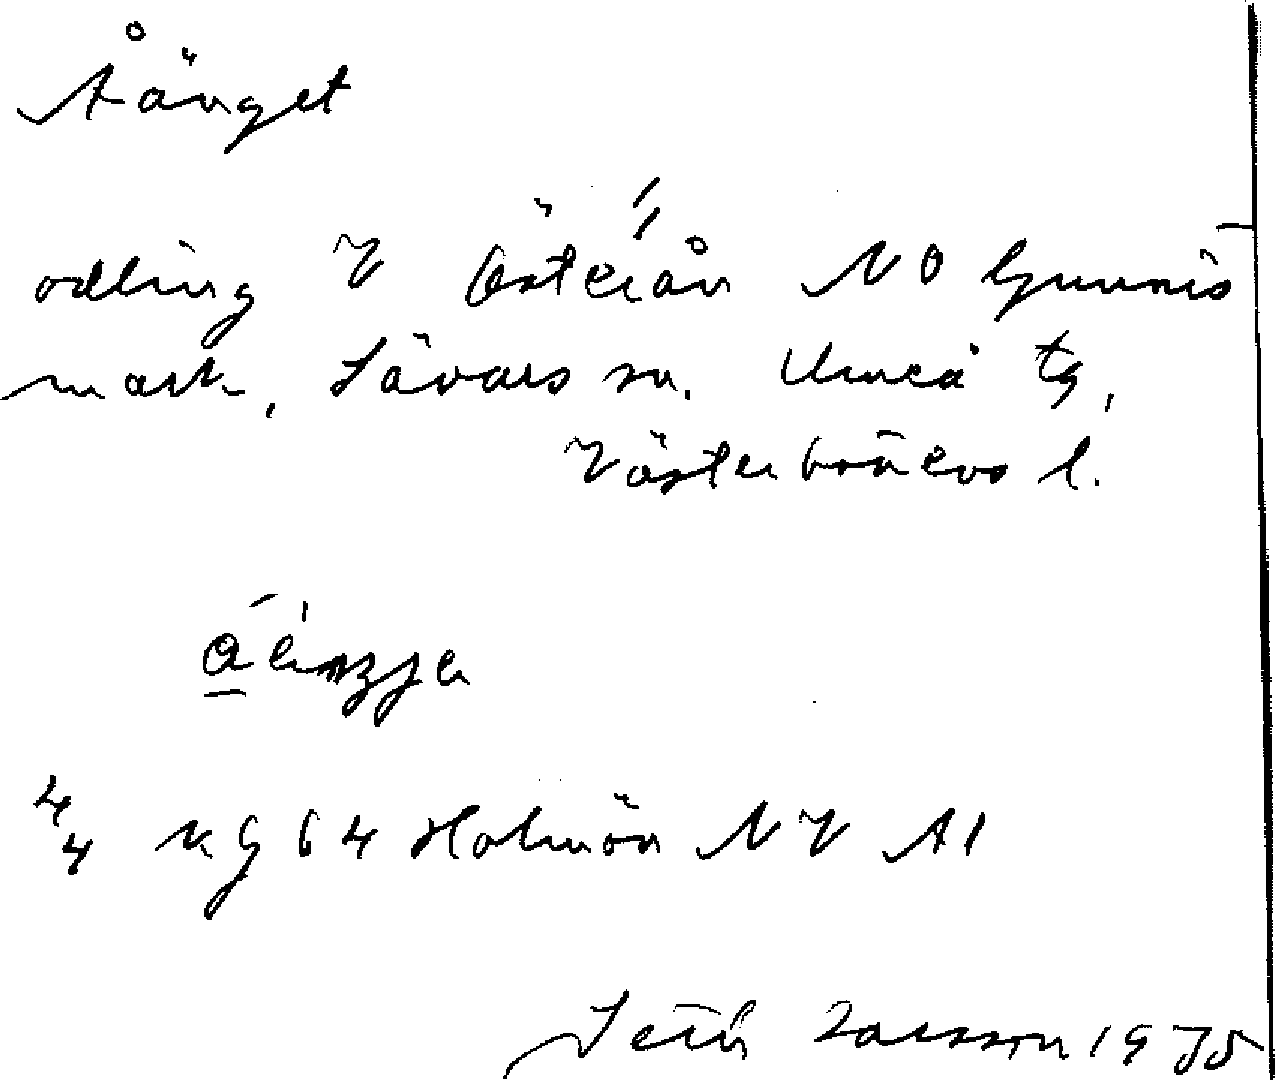 Åänget
odling V Österån NO Gunnis
mark, Sävars sn. Umeå tg,
Västerbottens l.
4/4 kg 64 Holmön NV A1
Seth Larsson 1975